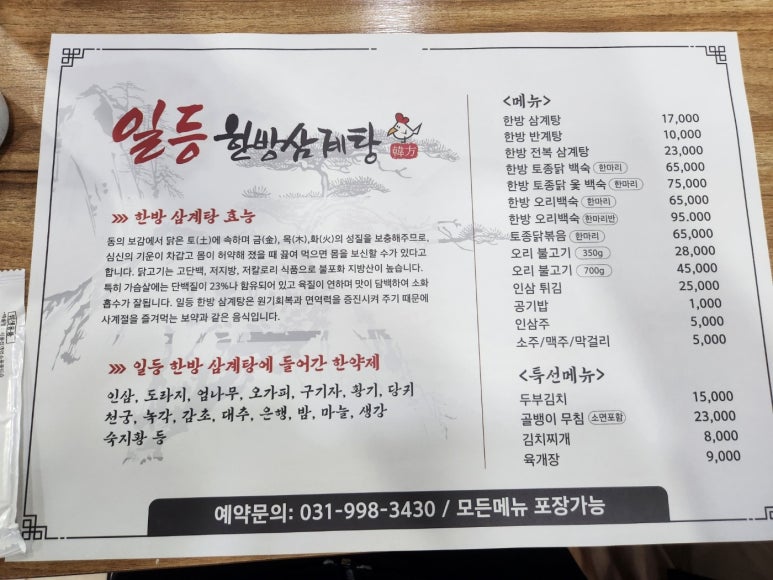 일등 한방삼계탕
韓方
>>> 한방 삼계탕 효능
동의 보감에서 닭은 토(土)에 속하며 금(金), 목(木),화(火)의 성질을 보충해주므로,
심신의 기운이 차갑고 몸이 허약해 졌을 때 끓여 먹으면 몸을 보신할 수가 있다고
합니다. 닭고기는 고단백, 저지방, 저칼로리 식품으로 불포화 지방산이 높습니다.
특히 가슴살에는 단백질이 23%나 함유되어 있고 육질이 연하며 맛이 담백하여 소화
흡수가 잘됩니다. 일등 한방 삼계탕은 원기회복과 면역력을 증진시켜 주기 때문에
사계절을 즐겨먹는 보약과 같은 음식입니다.
>>> 일등 한방 삼계탕에 들어간 한약제
인삼, 도라지, 엄나무, 오가피, 구기자, 황기, 당귀
천궁, 녹각, 감초, 대추, 은행, 밤, 마늘, 생강
숙지황 등
<메뉴>
한방 삼계탕 17,000
한방 반계탕 10,000
한방 전복 삼계탕 23,000
한방 토종닭 백숙 한마리 65,000
한방 토종닭 옻 백숙 한마리 75,000
한방 오리백숙 한마리 65,000
한방 오리백숙 한마리반 95.000
토종닭볶음 한마리 65,000
오리 불고기 350g 28,000
오리 불고기 700g 45,000
인삼 튀김 25,000
공기밥 1,000
인삼주 5,000
소주/맥주/막걸리 5,000
<특선메뉴>
두부김치 15,000
골뱅이 무침 소면포함 23,000
김치찌개 8,000
육개장 9,000
예약문의: 031-998-3430 / 모든메뉴 포장가능